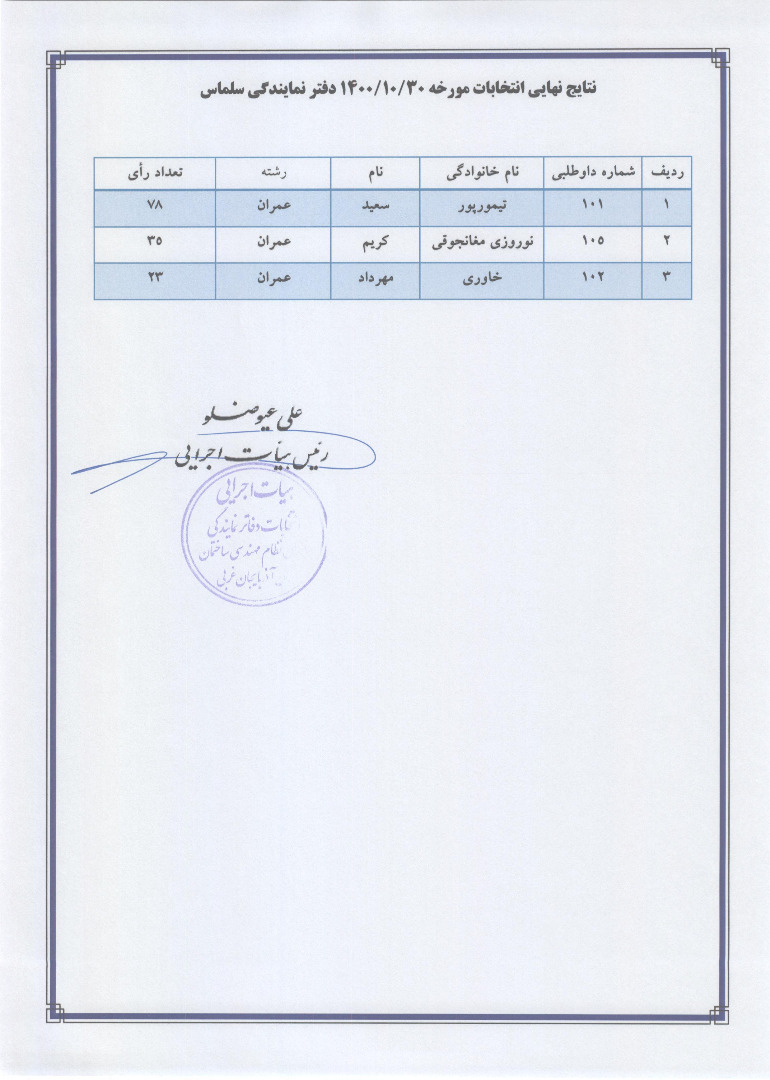 نتایج نهایی انتخابات مورخه ۱۴۰۰/۱۰/۳۰ دفتر نمایندگی سلماس
ردیف شماره داوطلبی نام خانوادگی نام رشته تعداد رأی
۱ ۱۰۱ تیمورپور سعید عمران ۷۸
۲ ۱۰۵ نوروزی مغانجوقی کریم عمران ۳۵
۳ ۱۰۲ خاوری مهرداد عمران ۲۳
علی عیوضلو
رئیس هیأت اجرایی
هیات اجرایی
انتخابات دفاتر نمایندگی
نظام مهندسی ساختمان
آذربایجان غربی